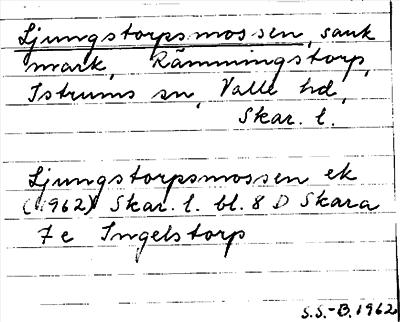 Ljungstorpsmossen, sank
mark, Rämmingstorp,
Istrums sn, Valle hd,
Skar. l.
Ljungstorpsmossen ek
(1962) Skar. l. bl. 8 D Skara
7 e Ingelstorp
S.S.-B. 1962